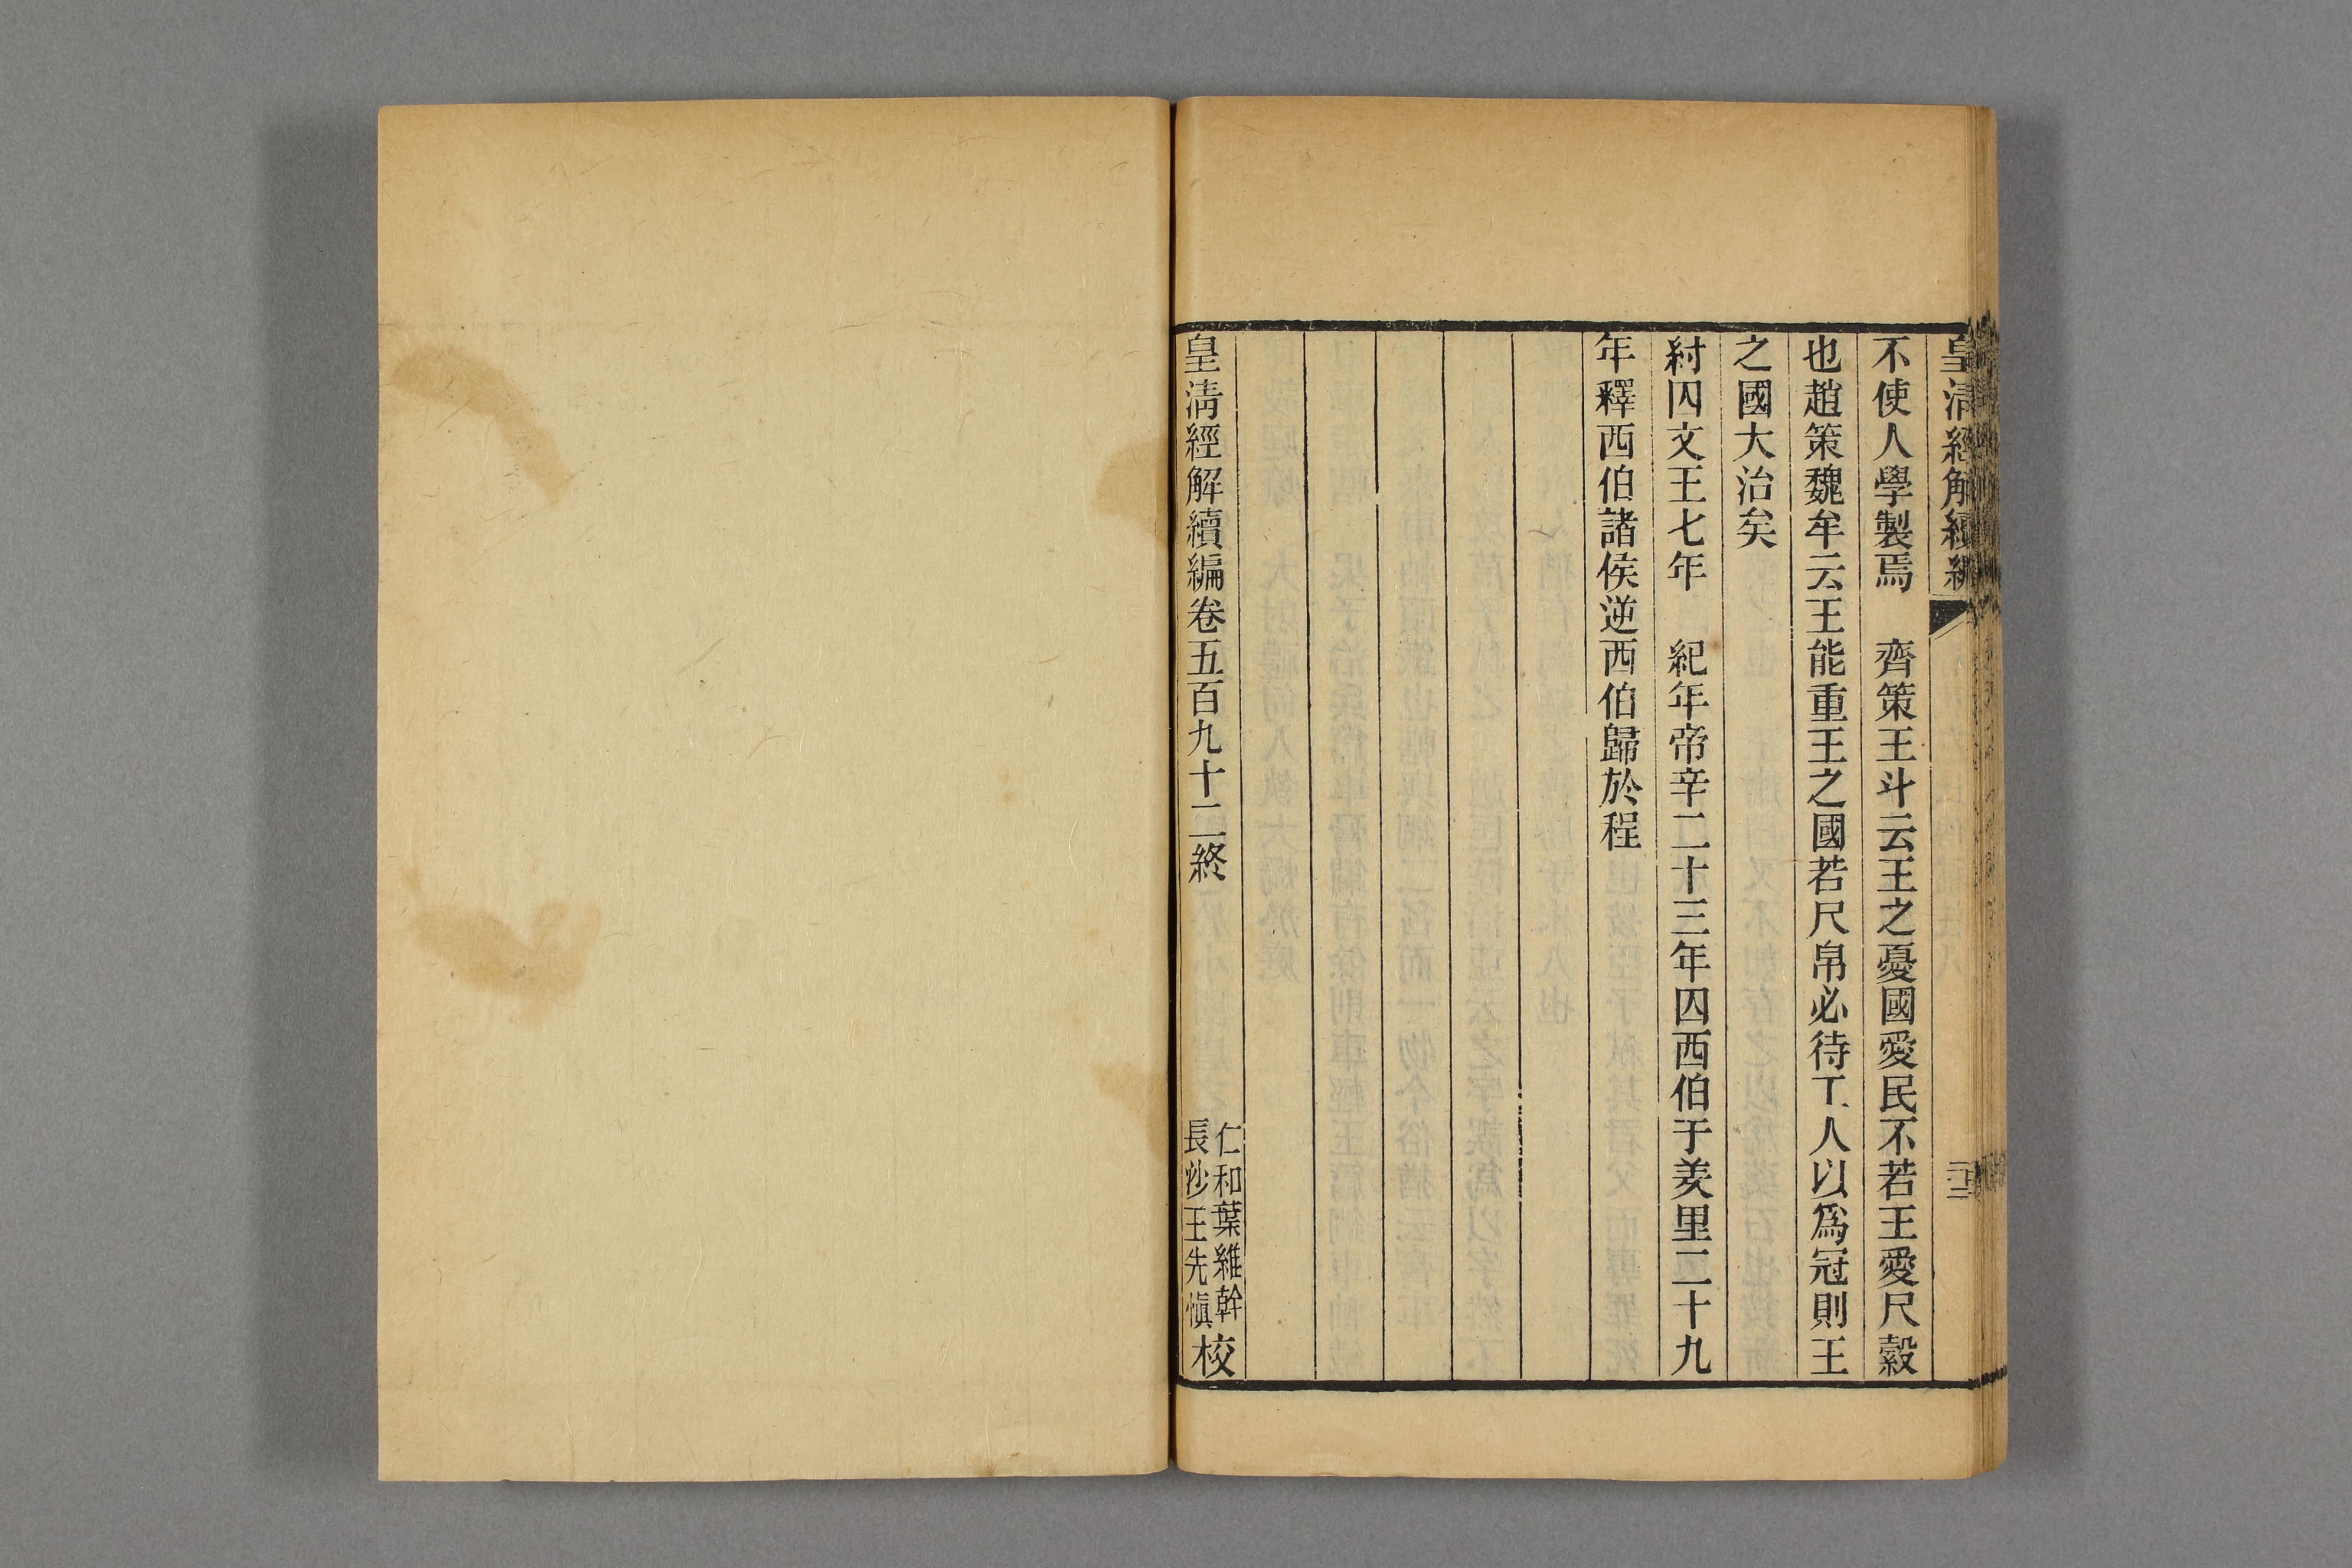 皇清經解續編
不使人學製焉　齊策王斗云王之憂國愛民不若王愛尺縠
也趙策魏牟云王能重王之國若尺帛必待工人以爲冠則王
之國大治矣
紂囚文王七年　紀年帝辛二十三年囚西伯于羑里二十九
年釋西伯諸侯逆西伯歸於程
皇清經解續編卷五百九十二終
仁和葉維幹
長沙王先愼
校